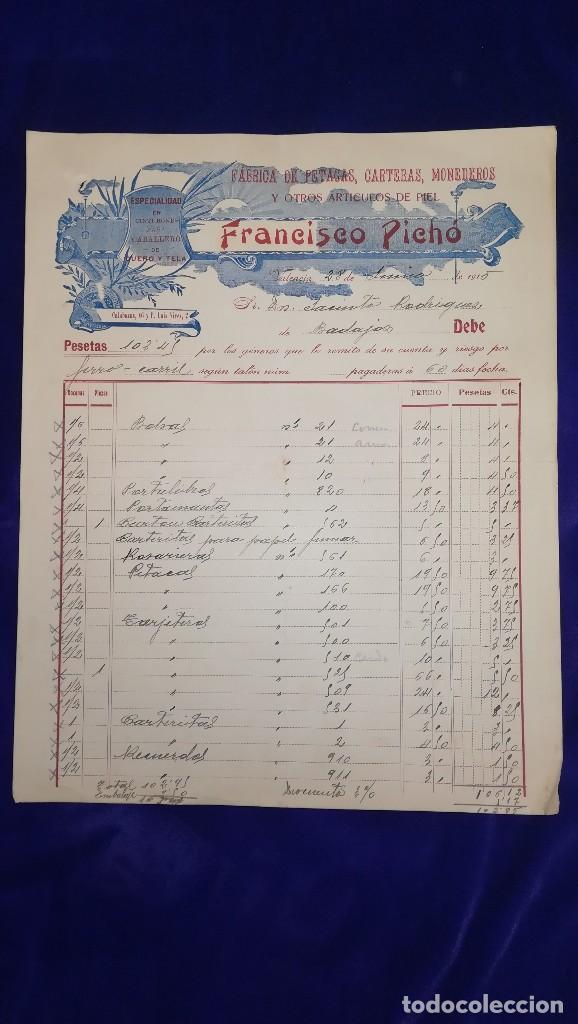 FÁBRICA DE PETACAS, CARTERAS, MONEDEROS
Y OTROS ARTICULOS DE PIEL
ESPECIALIDAD
EN
CINTURONES
PARA
CABALLERO
DE
CUERO Y TELA
Francisco Pichó
Calabazas, 16 y P. Luis Vives, 2
Valencia 28 de Junio de 1915
Sr. Dn. Jacinto Rodriguez
de Badajoz Debe
Pesetas 102'45 por los géneros que le remito de su cuenta y riesgo por
ferro-carril según talón núm. pagaderas á 60 dias fecha.
Docenas Piezas PRECIO Pesetas Cts.
1/6 Bolsas nº 21 24 " 4 "
1/6 " " 21 24 " 4 "
1/2 " " 12 8 " 4 "
1/2 " " 10 9 " 4 50
1/4 " 220 18 " 4 50
1/4 " 4 13 50 3 37
1 " 562 5 " 5 "
1/2 Carteritas para papel fumar 6 50 3 25
1/2 Rosarieras nº 561 6 " 3 "
1/2 Petacas " 170 19 50 9 75
1/2 " " 166 19 50 9 75
1/2 " " 100 5 50 2 75
1/2 Tarjeteros " 501 7 50 3 75
1/2 " " 500 6 50 3 25
1/2 " " 510 10 " 5 "
1 " " 525 56 "
1/2 " " 509 24 " 12 "
1/2 " " 531 16 50 8 25
1 Carteritas " 1 3 " 3 "
1 " " 2 4 50 4 50
1/2 Recuerdos " 910 3 " 1 50
1/2 " " 911 3 " 1 50
Total 102'95
Embalaje
Descuento 5 %
todocoleccion